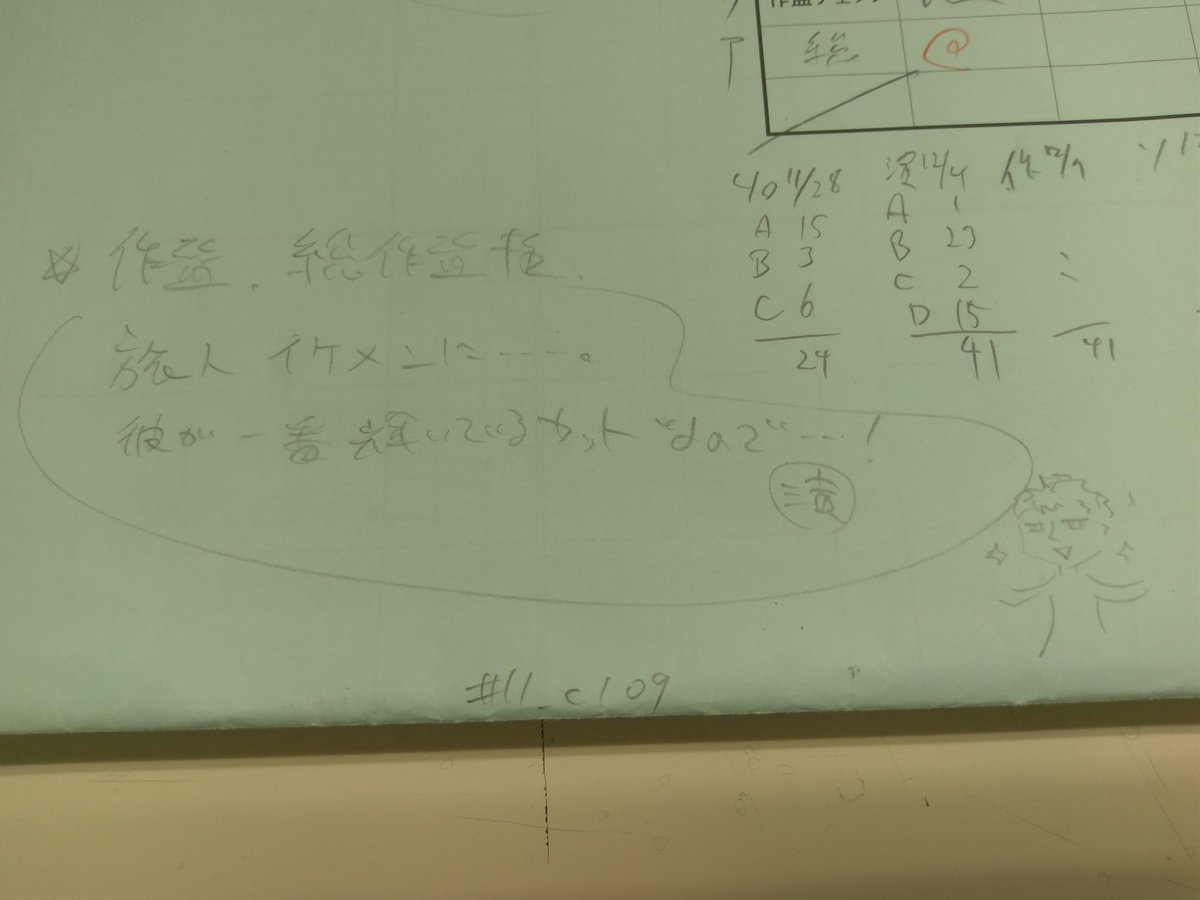 作監チェック
総
40 11/28
A 15
B 3
C 6
24
12/4
A 1
B 23
C 2
D 15
41
41
作監、総作監様、
旅人 イケメンに……。
彼が一番輝いているカットなので…!
#11_c109